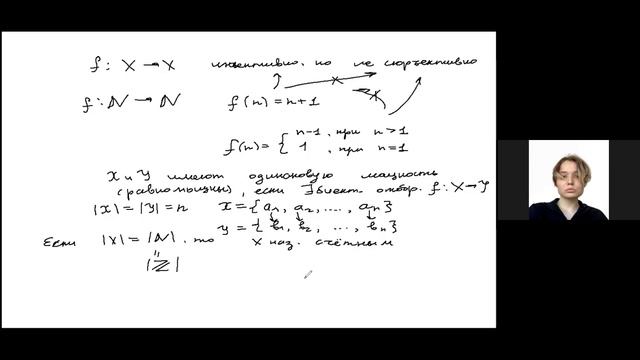 f: X → X инъективно, но не сюръективно
f: ℕ → ℕ f(n) = n+1
f(n) = { n-1, при n>1
1, при n=1
X и Y имеют одинаковую мощность
(равномощны), если ∃ биект. отобр. f: X → Y
|X| = |Y| = n X = {a₁, a₂, ..., aₙ}
Y = {b₁, b₂, ..., bₙ}
Если |X| = |ℕ|, то X наз. счётным
"
|ℤ|